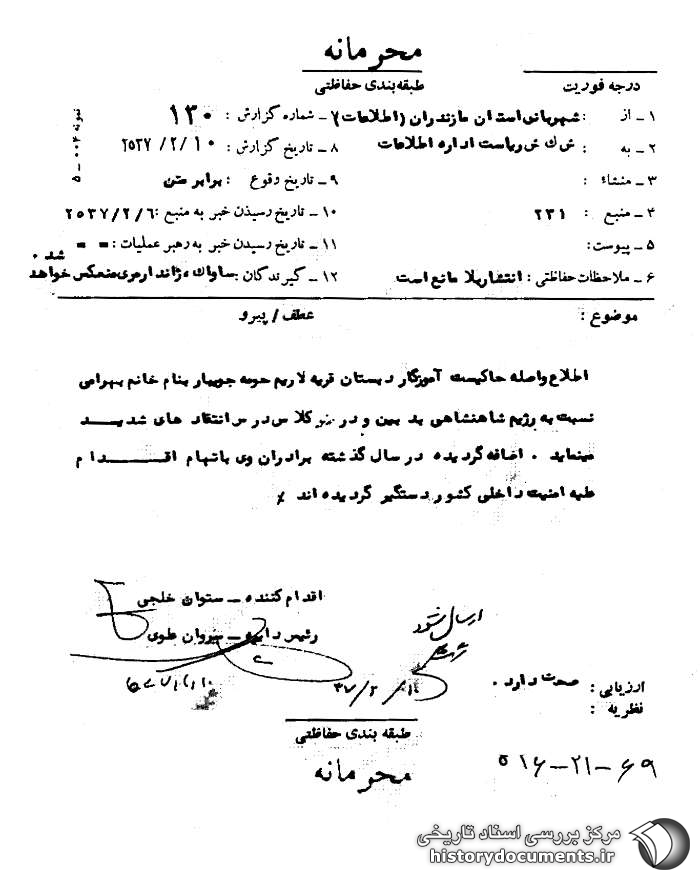 محرمانه
درجه فوریت
طبقه‌بندی حفاظتی
۱ـ از : شهربانی استان مازندران (اطلاعات)
۷ـ شماره گزارش : ۱۳۰
نمونه ۰۰۴ ـ ۵
۲ـ به : ش ك ش ریاست اداره اطلاعات
۸ـ تاریخ گزارش : ۲۵۳۷/۲/۱۰
۳ـ منشاء :
۹ـ تاریخ وقوع : برابر متن
۴ـ منبع : ۲۳۱
۱۰ـ تاریخ رسیدن خبر به منبع : ۲۵۳۷/۲/۶
۵ـ پیوست:
۱۱ـ تاریخ رسیدن خبر به رهبر عملیات : = =
۶ـ ملاحظات حفاظتی : انتشاربلا مانع است
۱۲ـ گیرندگان : ساواك ، ژاندارمری منعکس خواهد شد .
موضوع :
عطف / پیرو
اطلاع واصله حاکیست آموزگار دبستان قریه لاریم حومه جویبار بنام خانم بهرامی
نسبت به رژیم شاهنشاهی بد بین و در کلاس درس انتقاد های شدیــد
مینماید . اضافه گردیده در سال گذشته برادران وی باتهام اقـــدام
علیه امنیت داخلی کشور دستگیر گردیده اند
اقدام کننده ـ ستوان خلجی
رئیس دایره ـ سروان علوی
ارسال شود
۳۷/۲/
ارزیابی : صحت دارد .
نظریه :
طبقه بندی حفاظتی
محرمانه
۵۱۶-۲۱-۶۹
مرکز بررسی اسناد تاریخی
historydocuments.ir